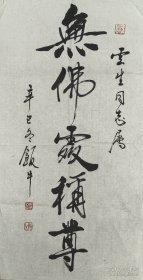 雲生同志属
無佛處稱尊
辛巳冬飯牛